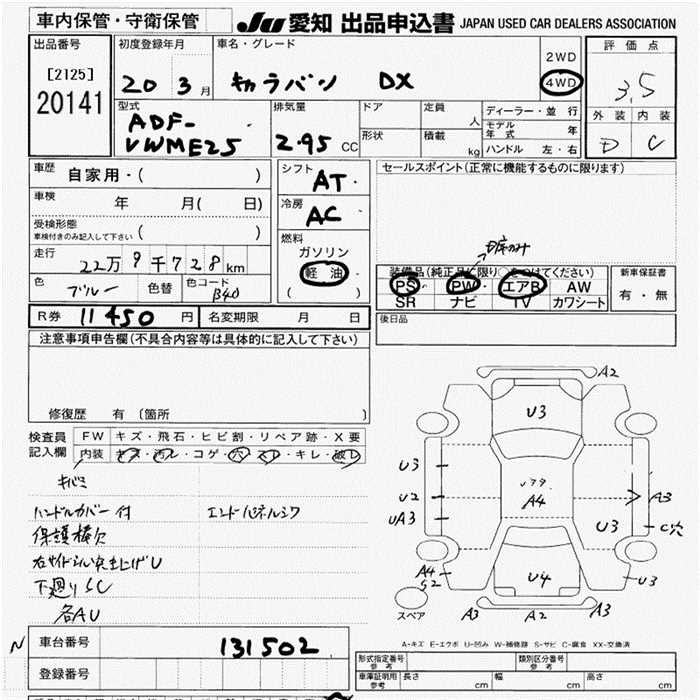 車内保管・守衛保管
JU 愛知 出品申込書 JAPAN USED CAR DEALERS ASSOCIATION
出品番号
[2125]
20141
初度登録年月
20 3月
車名・グレード
キャラバン DX
2WD
4WD
評価点
3.5
外装 内装
D C
型式
ADF-
VWME25
排気量
2.95 CC
ドア
定員 人
形状
積載 kg
ディーラー・並行
モデル年式 年
ハンドル 左・右
車歴 自家用・( )
車検 年 月( 日)
受検形態
車検付きのみ記入して下さい ( )
走行
22万9千728km
色 ブルー
色替
色コード B40
シフト
AT
冷房
AC
燃料
ガソリン
軽油
( )
セールスポイント(正常に機能するものに限ります)
装備品(純正品に限り○をつけてください)
PS・PW・エアB AW
SR ナビ TV カワシート
新車保証書
有・無
後日品
R券 11450円
名変期限 月 日
注意事項申告欄(不具合内容等は具体的に記入して下さい)
修復歴 有 (箇所 )
検査員
記入欄
FW キズ・飛石・ヒビ割・リペア跡・X要
内装 キズ・汚レ・コゲ・穴・スレ・キレ・破レ
キバミ
ハンドルカバー付 エンドパネルシワ
保護棒欠
右サイドシル突上げU
下廻りSC
各AU
A2
U3
U3
U2
UA3
A4
A3
U3
C穴
A4
S2
U4
U3
スペア
A3 A2 A3
A-キズ E-エクボ U-凹み W-補修跡 S-サビ C-腐食 XX-交換済
N
車台番号 131502
登録番号
形式指定番号
参考
類別区分番号
参考
車庫証明用
参考
長さ cm 幅 cm 高さ cm